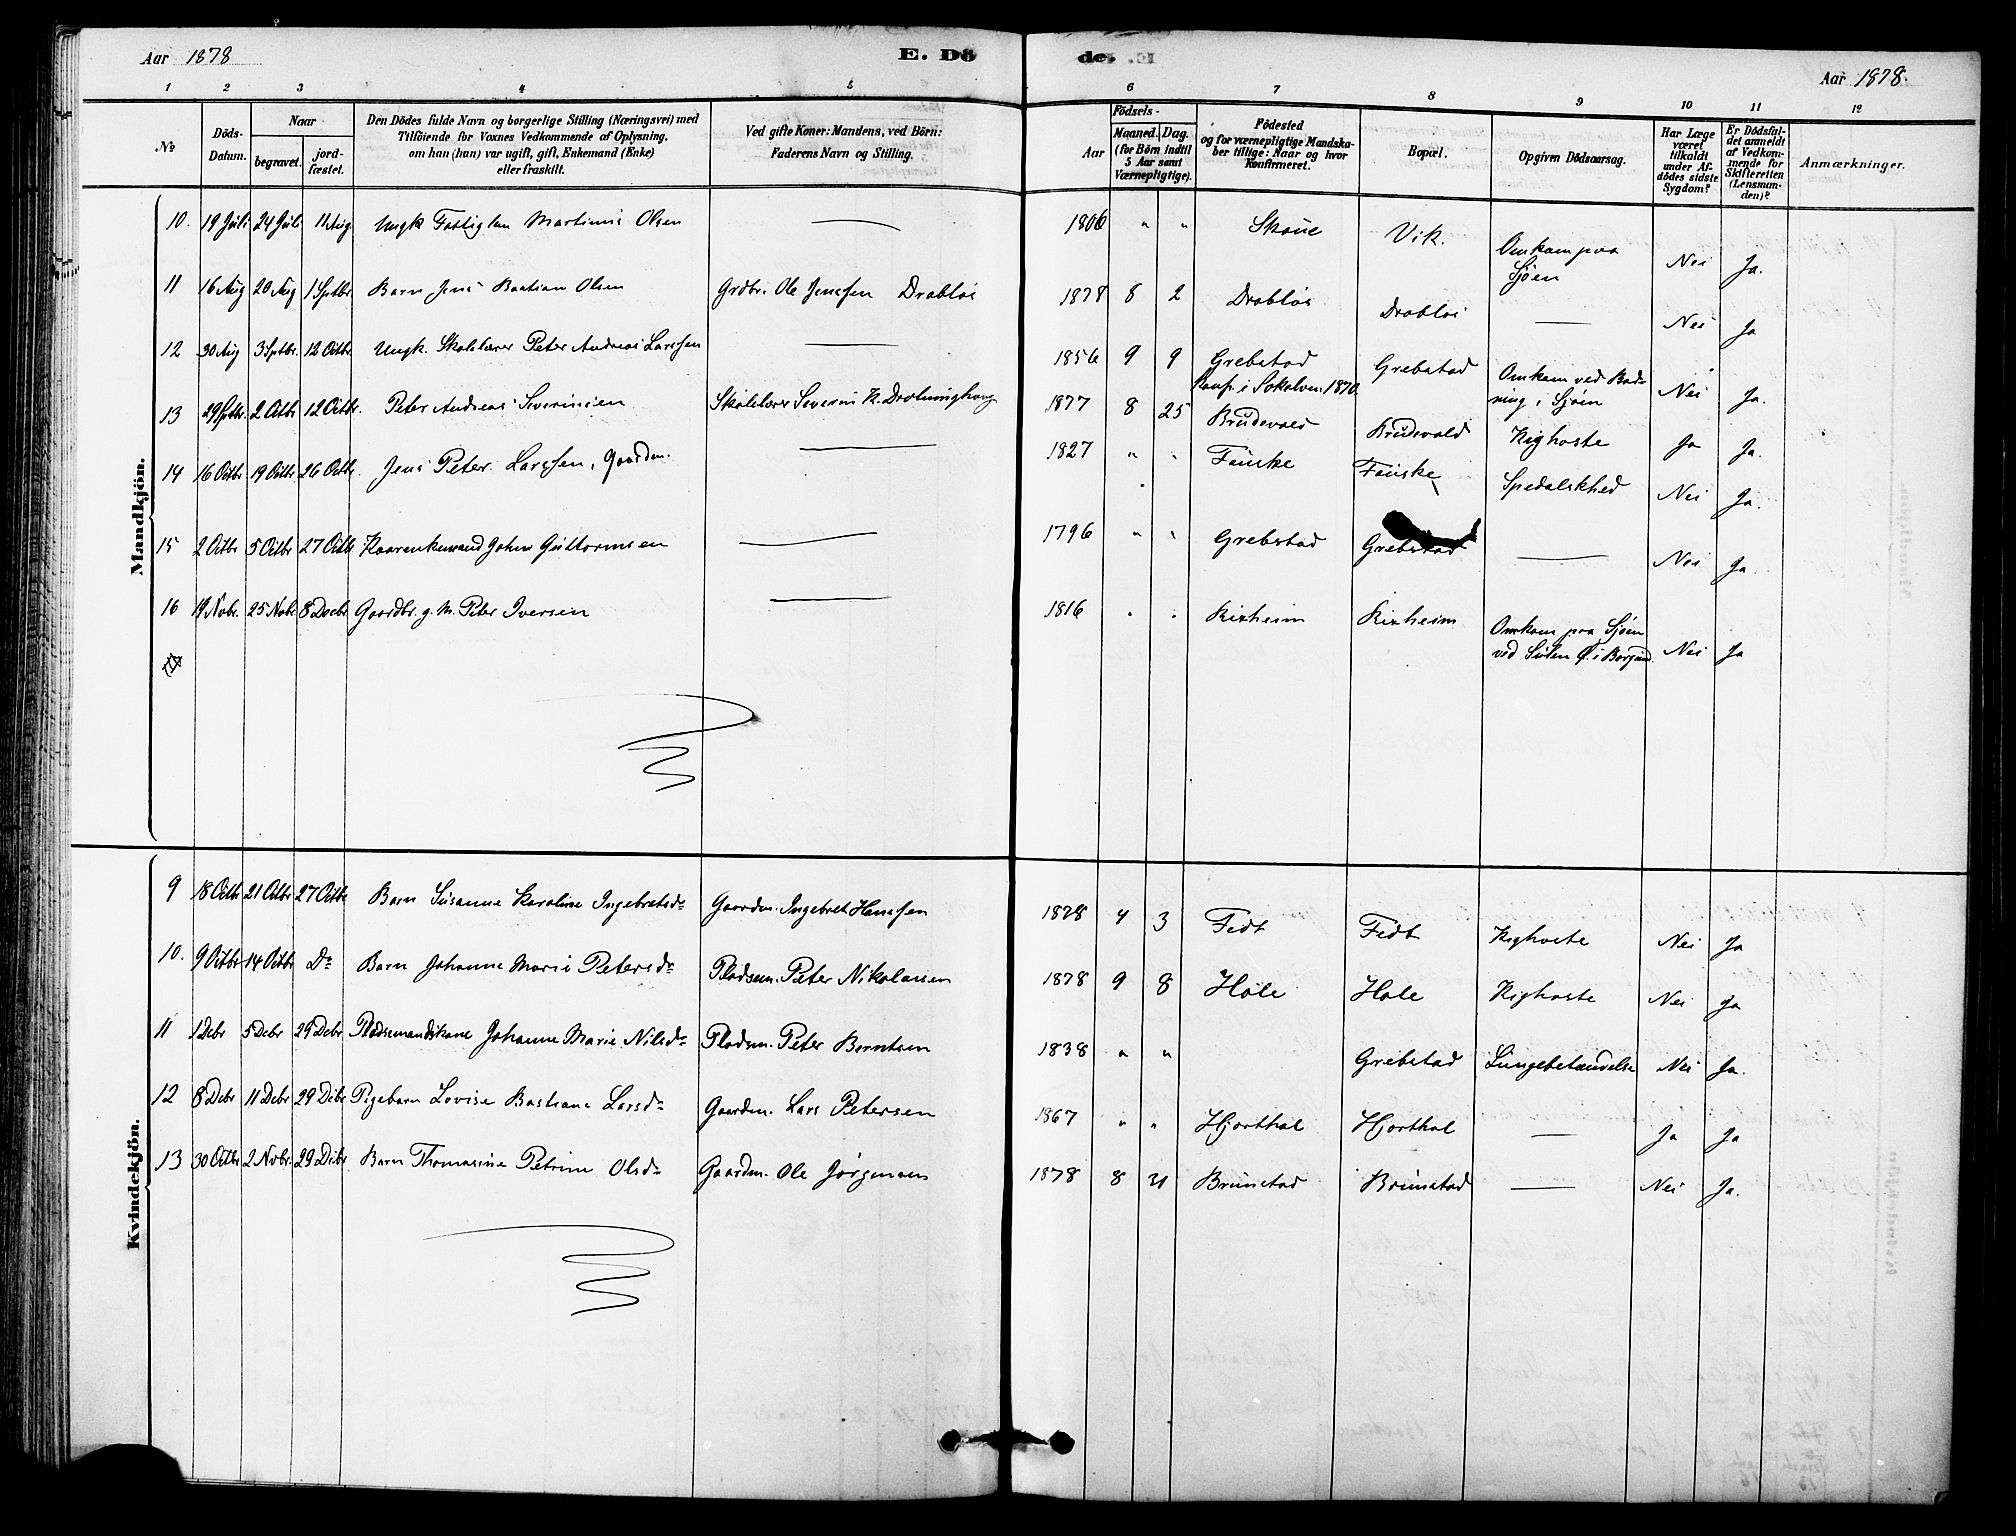 Aar 1878 E. Dö de. Aar 1878.
1 2 3 4 5 6 7 8 9 10 11 12
No Döds-Datum. Naar begravet. jordfæstet. Den Dödes fulde Navn og borgerlige Stilling (Næringsvei) med Tilföiende for Voxnes Vedkommende af Oplysning, om han (hun) var ugift, gift, Enkemand (Enke) eller fraskilt. Ved gifte Koner: Mandens, ved Börn: Faderens Navn og Stilling. Födsels- Aar Maaned. Dag. (for Börn indtil 5 Aar samt Værnepligtige). Födested og for værnepligtige Mandskaber tillige: Naar og hvor Konfirmeret. Bopæl. Opgiven Dödsaarsag. Har Læge været tilkaldt under Afdödes sidste Sygdom? Er Dödsfaldet anmeldt af Vedkommende for Skifteretten (Lensmanden)? Anmærkninger.
Mandkjön.
10. 19 Juli 24 Juli 11 Aug Ungk Fattiglem Martinus Olsen — 1806 " " Skoue Vik. Omkom paa Sjøen Nei Ja.
11 16 Aug 20 Aug 1 Sptbr. Barn Jens Bastian Olsen Grdbr. Ole Jenssen Drabløs 1878 8 2 Drabløs Drabløs — Nei Ja
12 30 Aug 3 Sptbr. 12 Octbr. Ungk. Skolelærer Peter Andreas Larssen — 1856 9 9 Grebstad Konf. i Sokelven 1870. Grebstad Omkom ved Badning i Sjøen Nei Ja.
13 29 Sptbr. 2 Octbr 12 Octbr. Peter Andreas Severinsen Skolelærer Severin K. Drotninghaug 1877 8 25 Brudevold Brudevold Kighoste Ja Ja.
14 16 Octbr 19 Octbr 26 Octbr Jens Peter Larssen, Gaardm. — 1827 " " Fauske Fauske Spedalskhed Nei Ja.
15 2 Octbr 5 Octbr 27 Octbr Kaarenkemand Johns Guttormsen — 1796 " " Grebstad Grebstad — Nei Ja.
16 19 Nobr. 25 Nobr 8 Decbr Gaardbr. g. M. Peter Iversen — 1816 " " Rixheim Rixheim Omkom paa Sjøen ved Sulen Ø. i Borgund. Nei Ja
Kvindekjön.
9 18 Octbr 21 Octbr 27 Octbr Barn Susanne Karoline Ingebretsdr Gaardm. Ingebret Hanssen 1878 4 3 Fedt Fedt Kighoste Nei Ja
10. 9 Octbr 14 Octbr Do Barn Johanne Marie Petersdr Pladsm. Peter Nikolaisen 1878 9 8 Hole Hole Kighoste Nei Ja
11 1 Debr 5 Debr 29 Debr Pladsemandskone Johanne Marie Nilsdr Pladsm. Peter Berntsen 1838 " " Grebstad Lungebetændelse Nei Ja.
12 8 Debr 11 Debr 29 Debr Pigebarn Lovise Bastiane Larsdr Gaardm. Lars Petersen 1867 " " Hjorthol Hjorthol — Ja Ja
13 30 Octbr 2 Nobr. 29 Debr Barn Thomasine Petrine Olsdr Gaardm. Ole Jørgensen 1878 8 31 Brunstad Brunstad — Nei Ja.